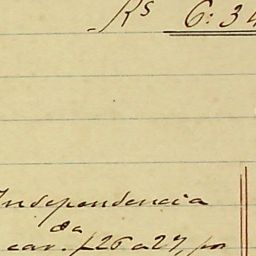 Rs 6:34
Independencia
da
car. f 26 a 27, por